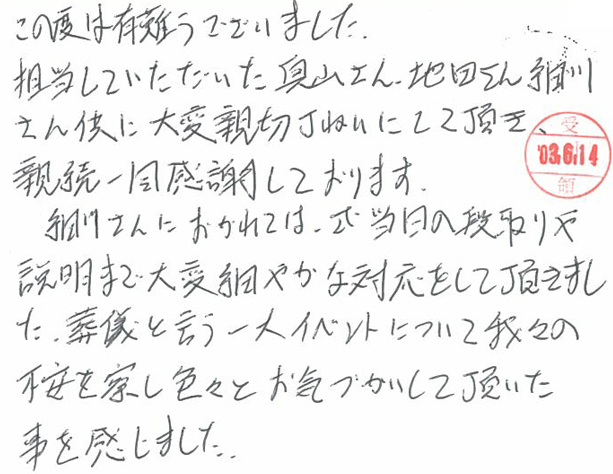 この度は有難うございました.
担当していただいた奥山さん、池田さん、細川
さん供に大変親切丁ねいにして頂き、
親続一同感謝しております.
細川さんにおかれては、式当日の段取りや
説明まで大変細やかな対応をして頂きまし
た. 葬儀と言う一大イベントについて我々の
不安を察し色々とお気づかいして頂いた
事を感じました.
受
'03.6.14
領